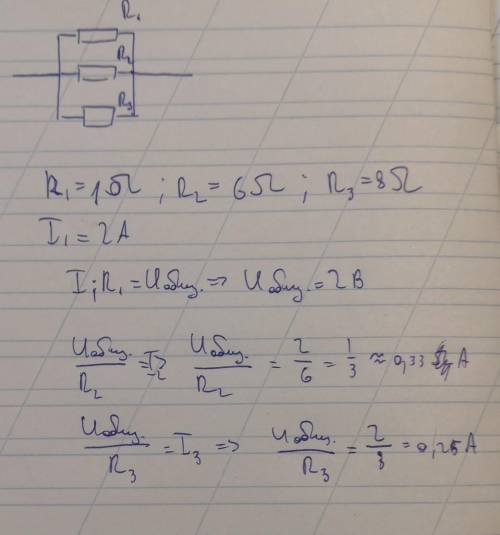 R₁
R₂
R₃
R₁=1Ω ; R₂= 6Ω ; R₃=8Ω
I₁=2A
I₁R₁=Uобщ. => Uобщ.=2В
Uобщ./R₂ = I₂ => Uобщ./R₂ = 2/6 = 1/3 ≈ 0,33 A
Uобщ./R₃ = I₃ => Uобщ./R₃ = 2/8 = 0,25A